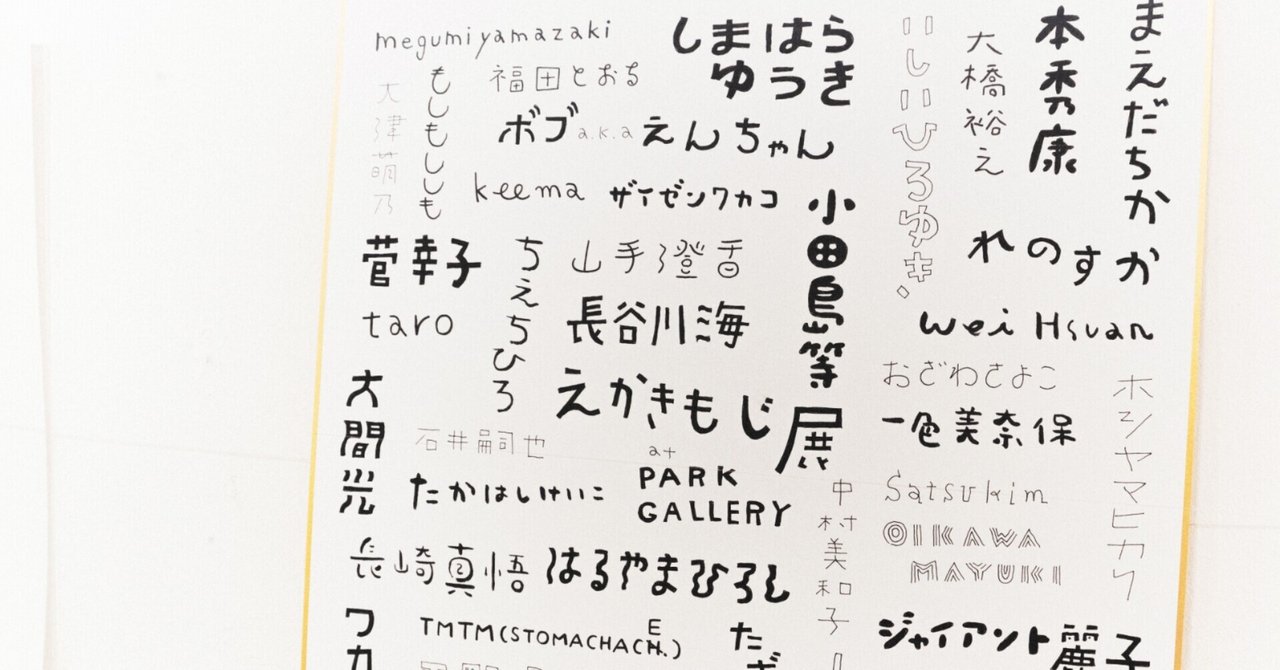 megumiyamazaki
しまはら
ゆうき
いしいひろゆき、
大橋裕之
本秀康
まえだちかか
大津萌乃
もしもししも
福田とおる
ボブa.k.aえんちゃん
keema
ザイゼンワカコ
小田島等
れのすか
菅幸子
ちえちひろ
山手澄香
taro
長谷川海
wei Hsuan
おざわさよこ
ホシヤマヒカリ
大間光
えかきもじ展
一色美奈保
石井嗣也
at
PARK
GALLERY
たかはしけいこ
中村美和子
Satsukim
OIKAWA
MAYUKI
長崎真悟
はるやまひろし
TMTM(STOMACHACHE.)
ジャイアント麗子
ワカ